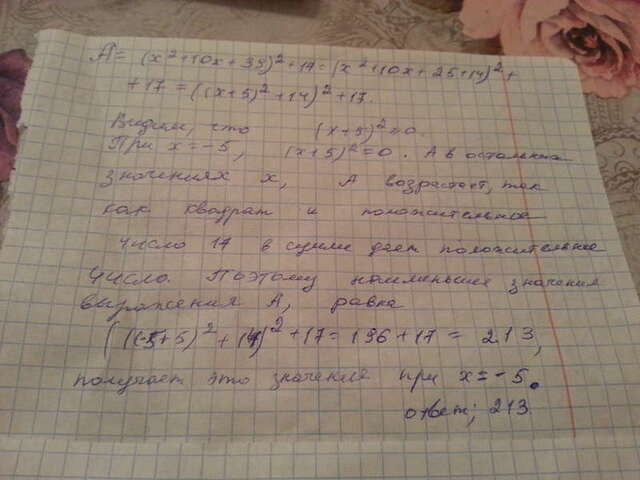 A = (x²+10x+39)²+17 = (x²+10x+25+14)²+
+17 = ((x+5)²+14)²+17.
Видим, что (x+5)²≥0.
При x=-5, (x+5)²=0. А в остальных
значениях x, А возрастает, так
как квадрат и положительное
число 17 в сумме дает положительное
число. Поэтому наименьшее значение
выражения А, равна
((-5+5)²+14)²+17=196+17=213,
получает это значение при x=-5.
ответ; 213.